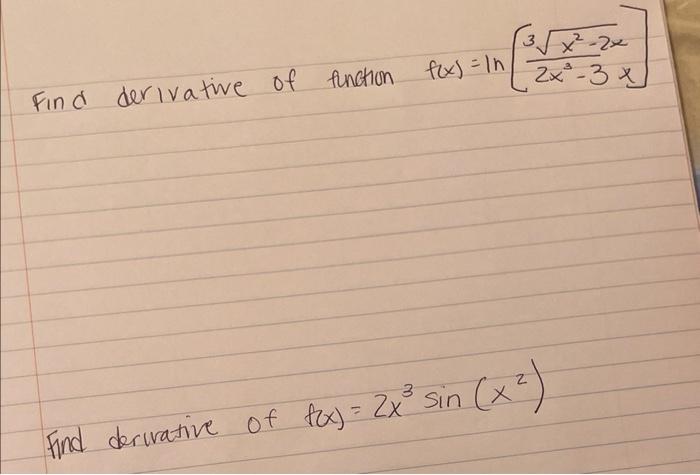 Find derivative of function f(x) = ln [ ∛(x² - 2x) / (2x³ - 3x) ]
Find derivative of f(x) = 2x³ sin (x²)